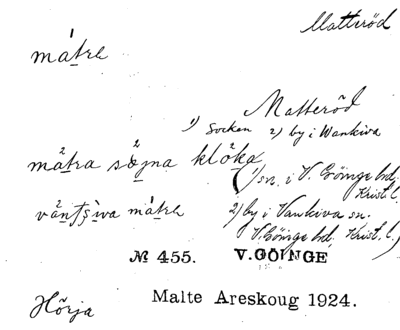 Matteröd
mátrɐ
Matteröd
1) Socken 2) by i Wankiva
mátra sǫ́gna klǫ́ka
(1) sn. i V. Göinge hd,
Krist. l.
vánʃiva mátrɐ
2) by i Vankiva sn.
V. Göinge hd, Krist. l.)
№ 455. V. GÖINGE
Hörja
Malte Areskoug 1924.